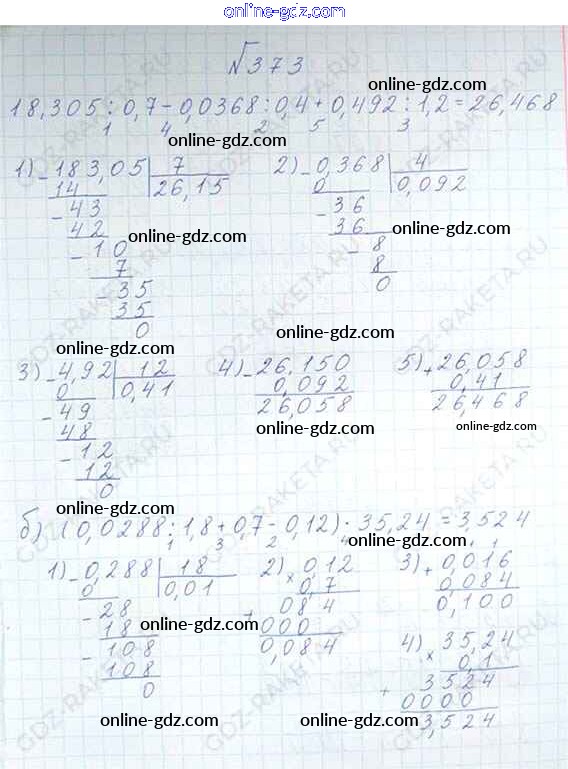 online-gdz.com
N373
online-gdz.com
18,305 : 0,7 - 0,0368 : 0,4 + 0,492 : 1,2 = 26,468
1 4 2 5 3
online-gdz.com
1) - 183,05 | 7
14 26,15
- 43
42
- 10
7
- 35
35
0
2) - 0,368 | 4
0 0,092
- 36
36
- 8
8
0
online-gdz.com
online-gdz.com
online-gdz.com
online-gdz.com
3) - 4,92 | 12
0 0,41
- 49
48
- 12
12
0
4) - 26,150
0,092
26,058
5) + 26,058
0,41
26,468
online-gdz.com
online-gdz.com
online-gdz.com
б) (0,0288 : 1,8 + 0,7 · 0,12) · 35,24 = 3,524
1 3 2 4
1) - 0,288 | 18
0 0,01
- 28
18
- 108
108
0
2) × 0,12
0,7
084
+ 000
0,084
3) + 0,016
0,084
0,100
4) × 35,24
0,1
3524
+ 0000
3,524
online-gdz.com
online-gdz.com
online-gdz.com
online-gdz.com
online-gdz.com
GDZ-RAKETA.RU